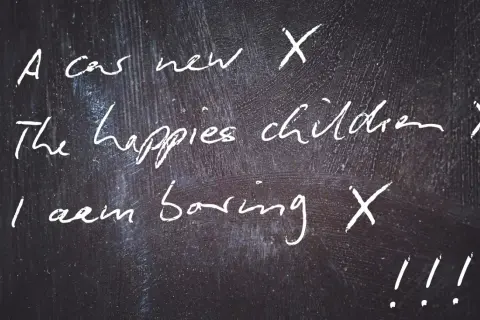 A car new X
The happies children X
I aam boring X
!!!